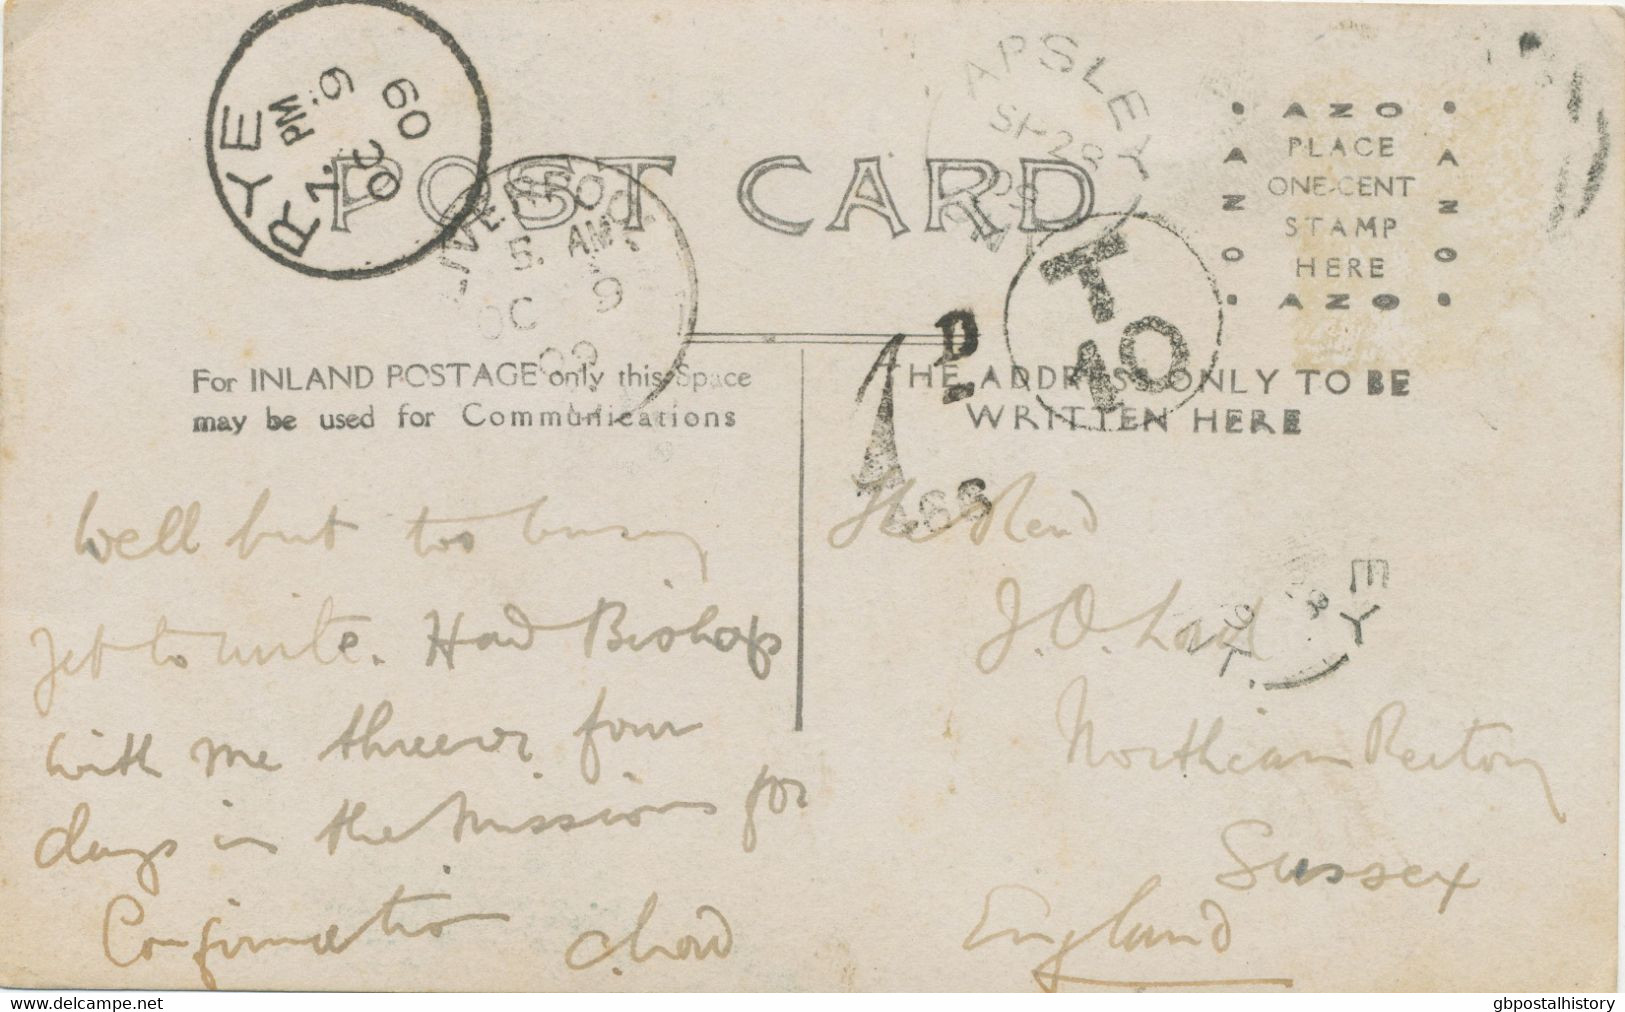 RYE
7. PM
9 OC
09
LIVERPOOL
5. AM
OC 9
09
APSLEY
SP 28
09
POST CARD
• AZO •
PLACE
ONE-CENT
STAMP
HERE
• AZO •
AZO
AZO
T
10
1D
466
For INLAND POSTAGE only this Space
may be used for Communications
THE ADDRESS ONLY TO BE
WRITTEN HERE
Well but too busy
yet to write. Had Bishop
with me three or four
days in the Missions for
Confirmation
The Revd
J. O.
Northiam Rectory
Sussex
England
EY
NT.
gbpostalhistory